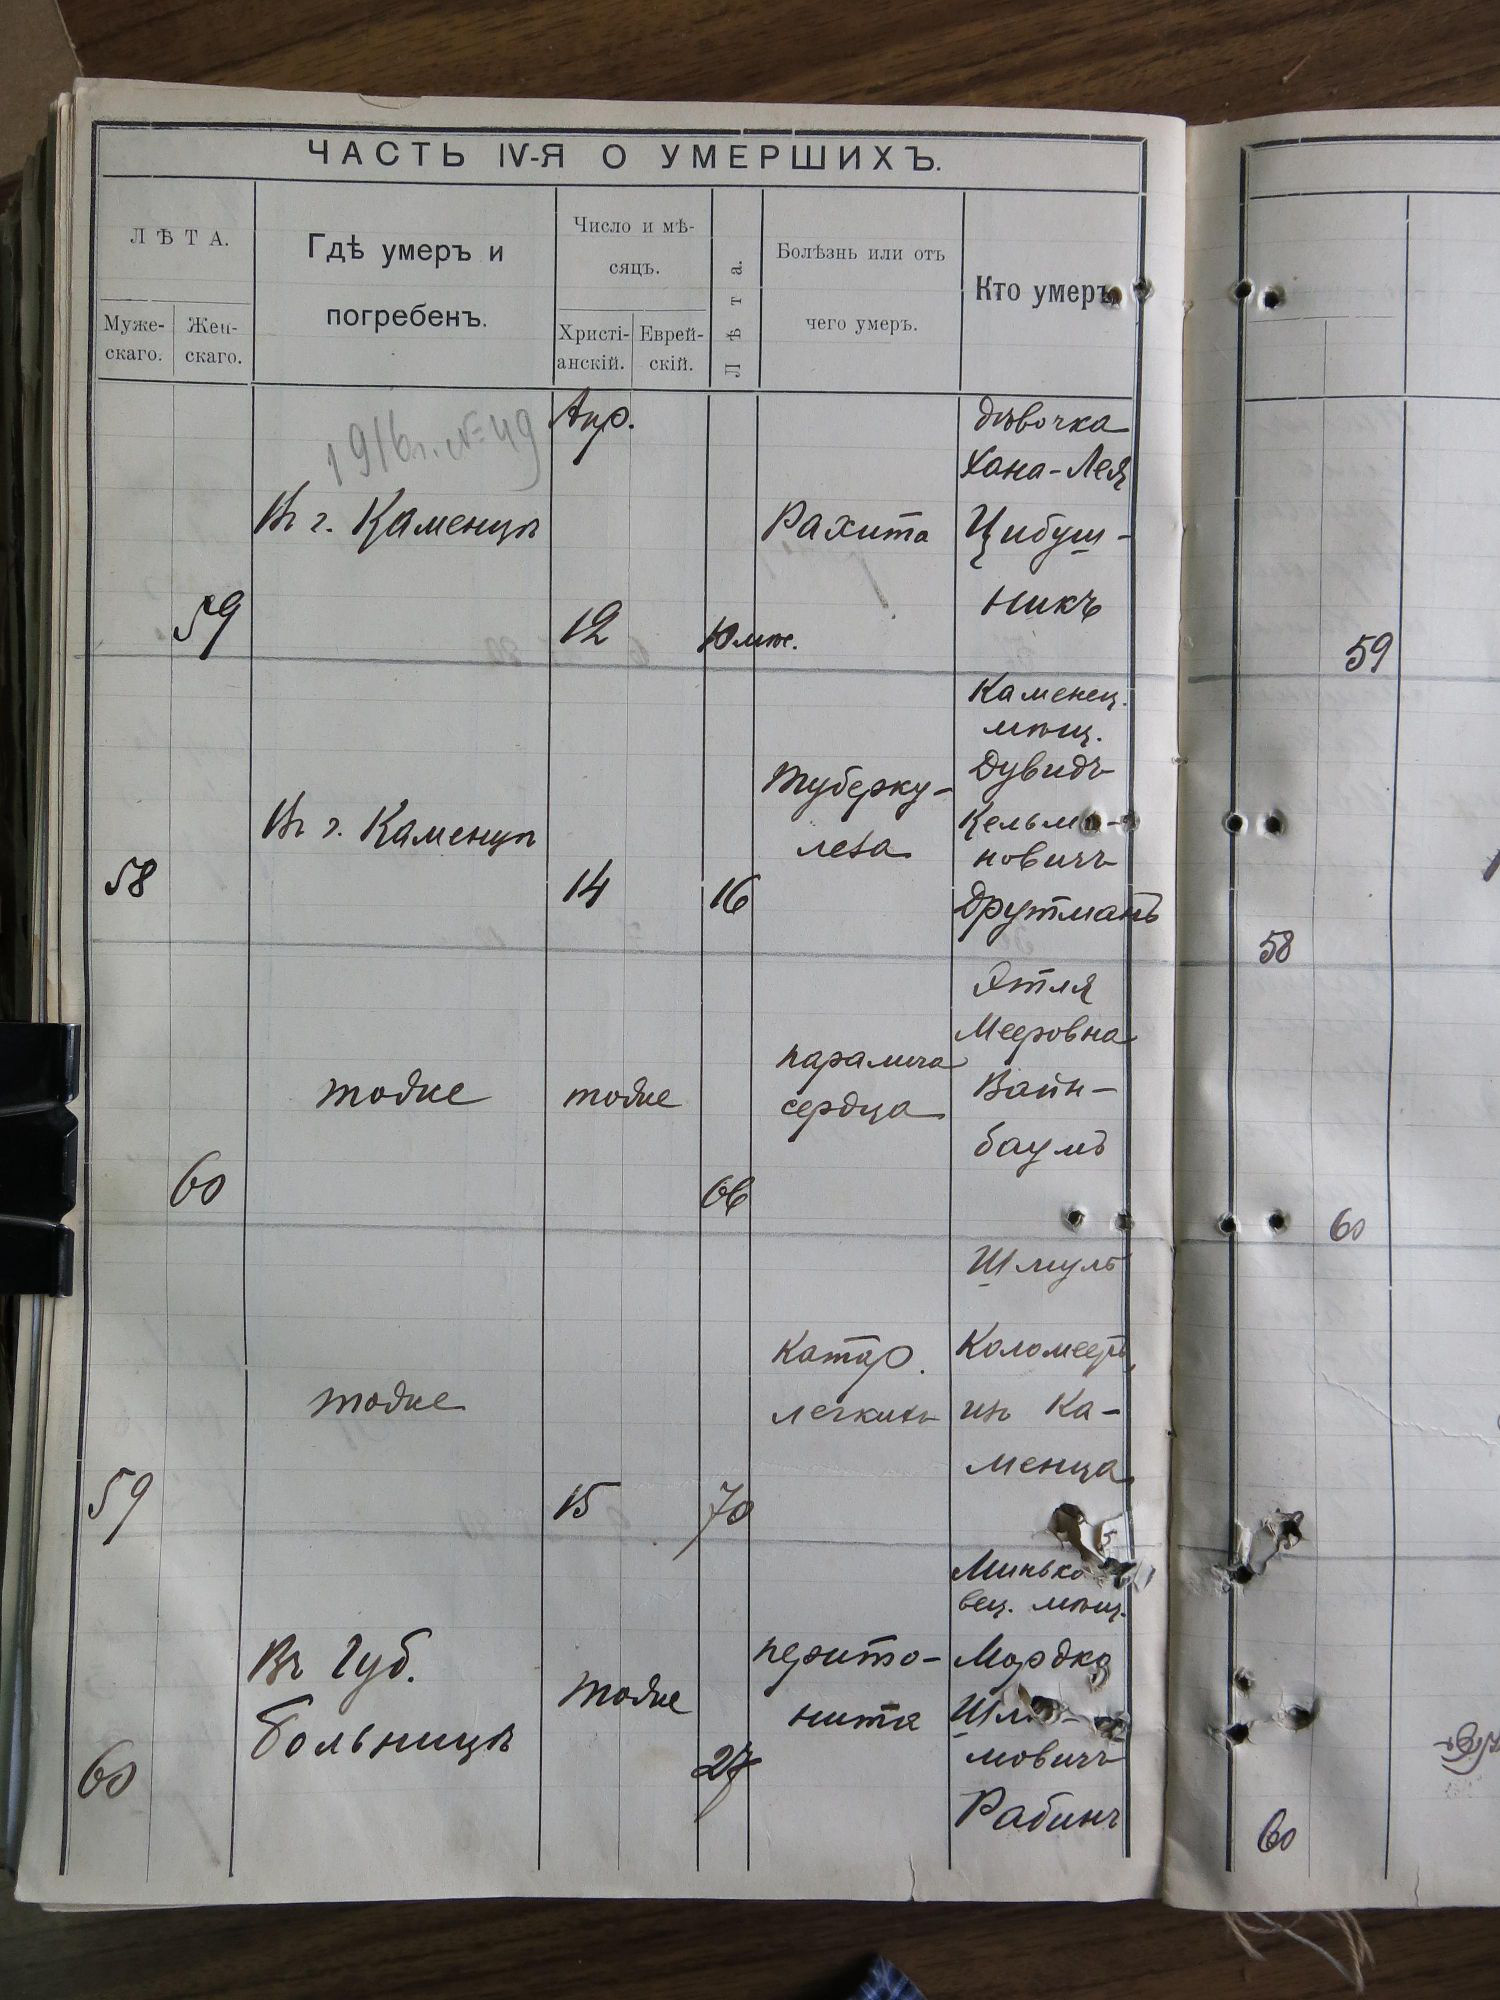 ЧАСТЬ IV-Я О УМЕРШИХЪ.
ЛѢТА.
Муже-
скаго.
Жен-
скаго.
Гдѣ умеръ и
погребенъ.
Число и мѣ-
сяцъ.
Христі-
анскій.
Еврей-
скій.
Лѣта.
Болѣзнь или отъ
чего умеръ.
Кто умеръ
1916г. № 49
Апр.
59
Въ г. Каменцѣ
12
10 мѣс.
Рахита
дѣвочка
Хана-Лея
Цибуш-
никъ
59
58
Въ г. Каменцѣ
14
16
Туберку-
леза
Каменец.
мѣщ.
Дувидъ
Кельма-
новичъ
Друтманъ
58
60
тоже
тоже
66
паралича
сердца
Этля
Мееровна
Вайн-
баумъ
60
59
тоже
15
70
Катар.
легкихъ
Шмуль
Коломеецъ,
изъ Ка-
менца
60
Въ Губ.
больницѣ
тоже
27
перито-
нита
Минько
вец. мѣщ.
Мордко
мовичъ
Рабинъ
60